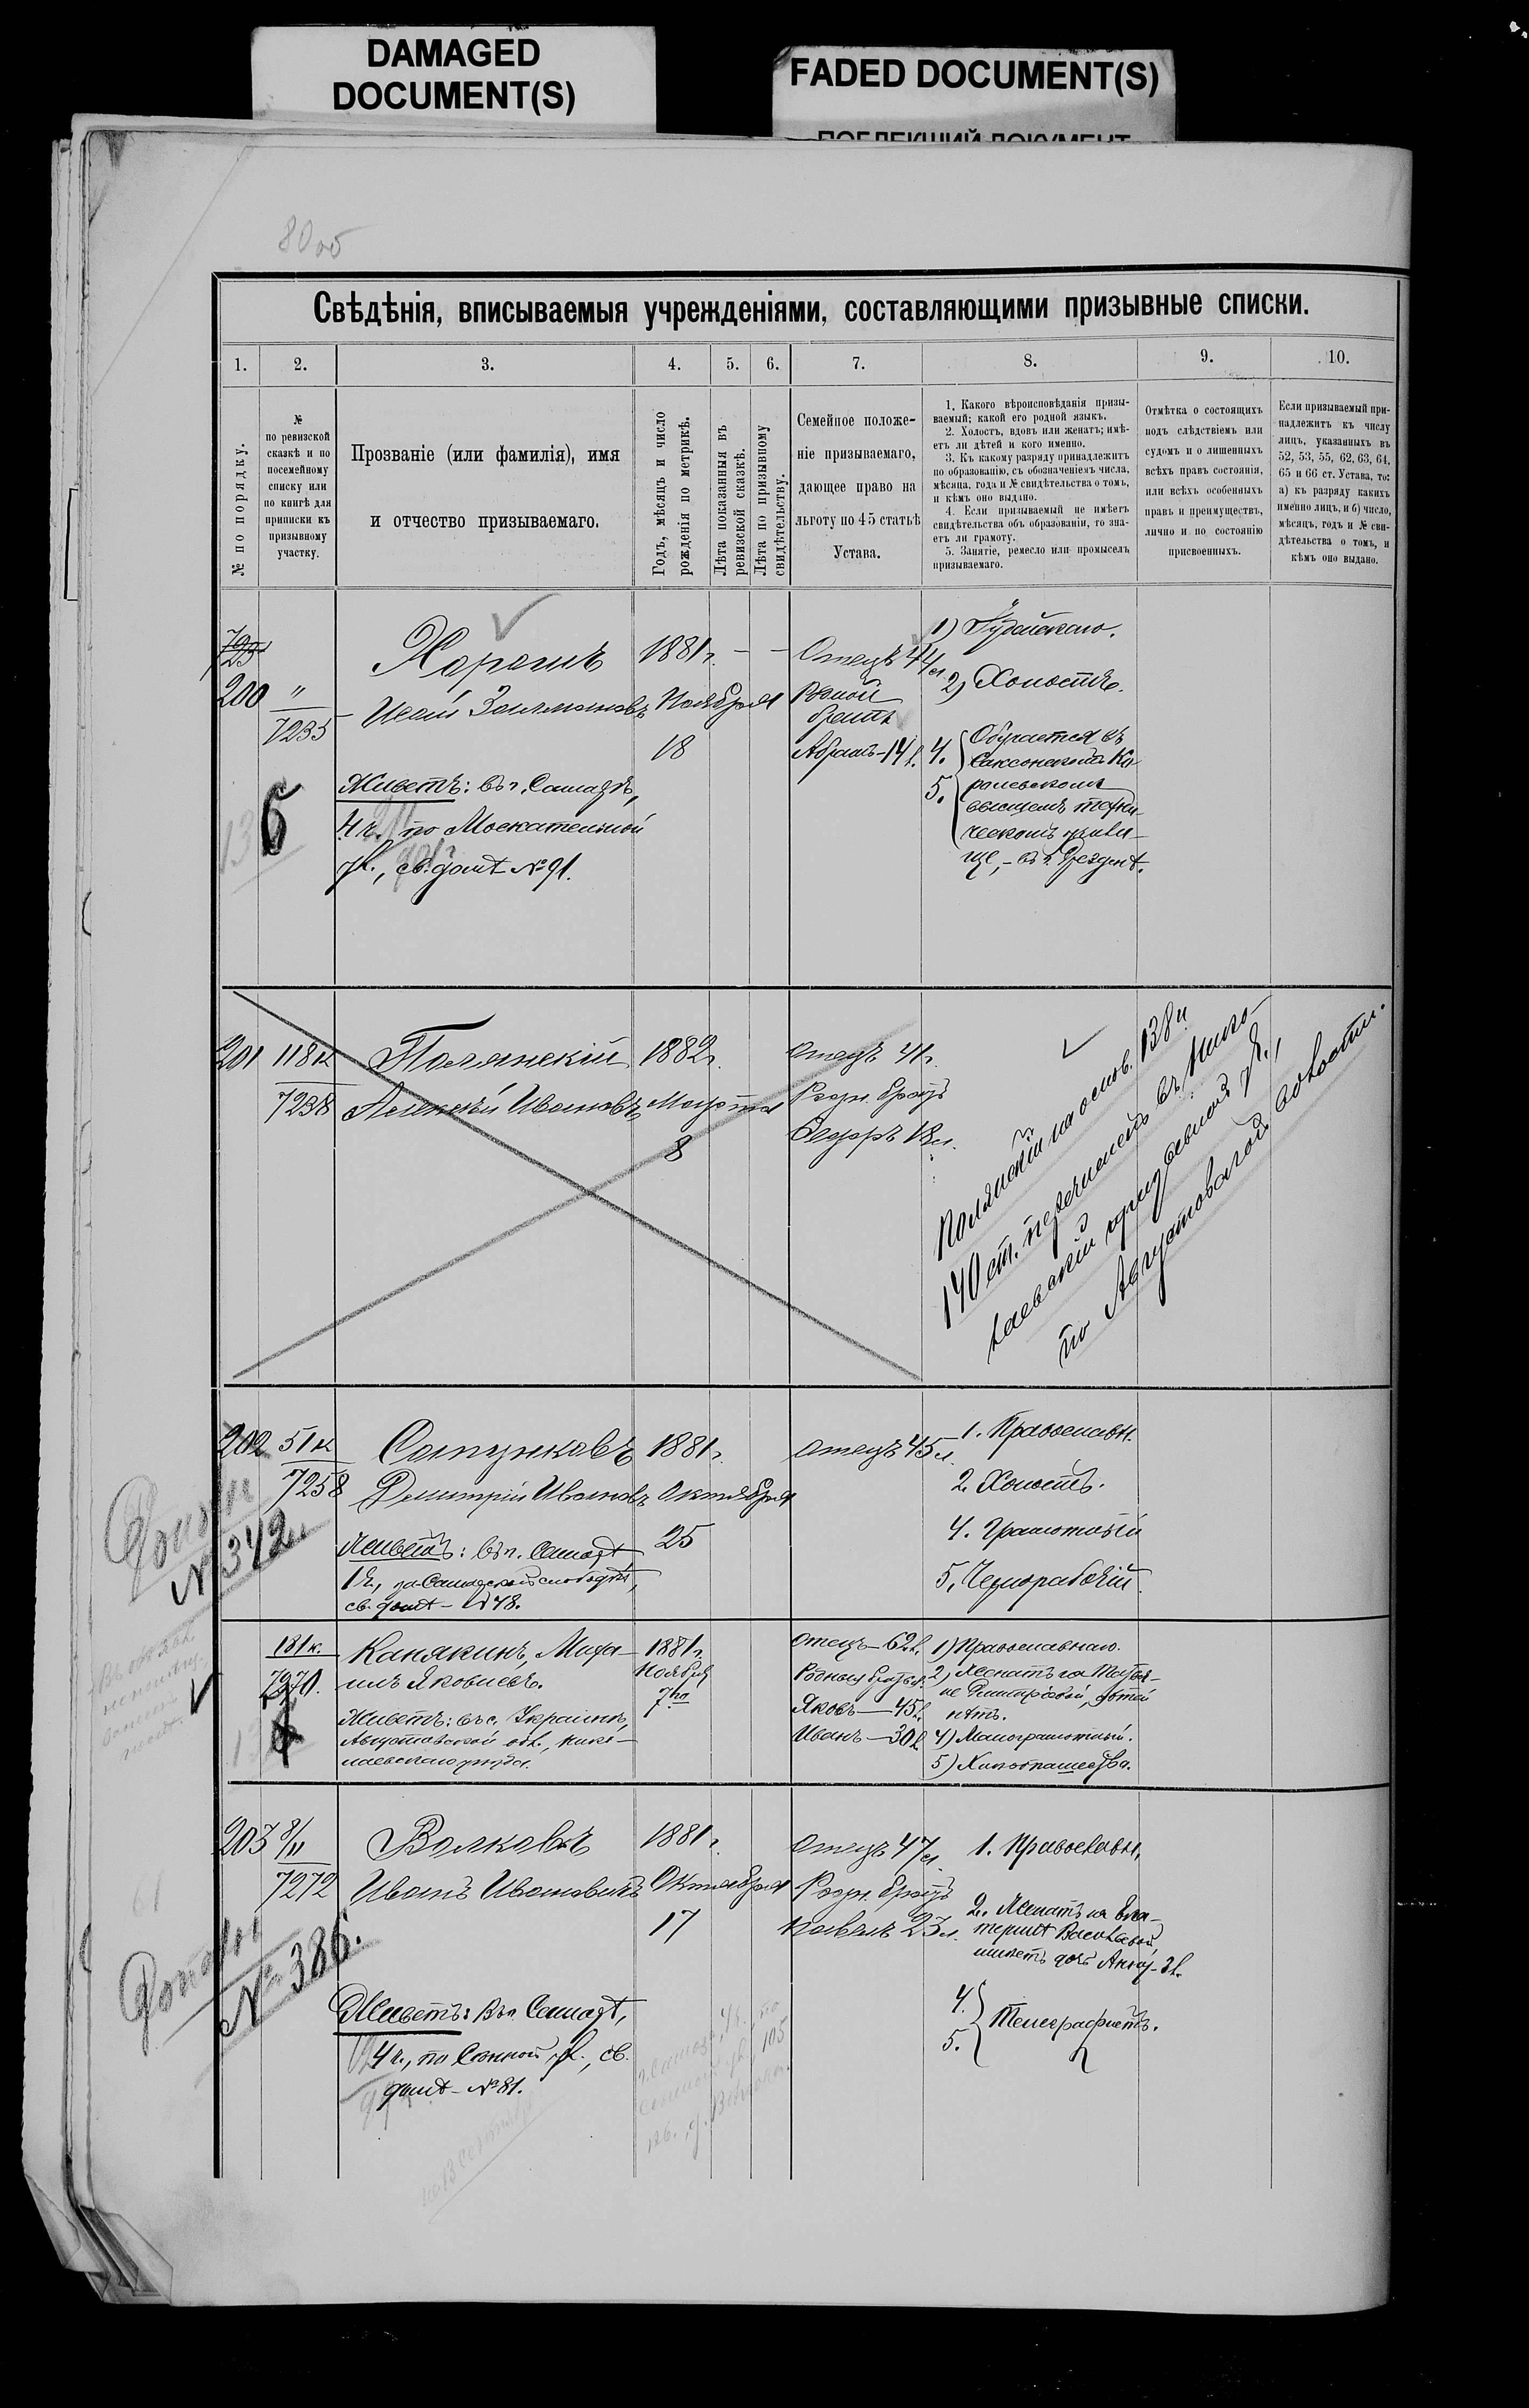 DAMAGED
DOCUMENT(S)
FADED DOCUMENT(S)
ПОБЛЕКШИЙ ДОКУМЕНТ
80 об
Свѣдѣнія, вписываемыя учрежденіями, составляющими призывные списки.
1. 2. 3. 4. 5. 6. 7. 8. 9. 10.
№ по порядку.
№
по ревизской
сказкѣ и по
посемейному
списку или
по книгѣ для
приписки къ
призывному
участку.
Прозваніе (или фамилія), имя
и отчество призываемаго.
Годъ, мѣсяцъ и число
рожденія по метрикѣ.
Лѣта показанныя въ
ревизской сказкѣ.
Лѣта по призывному
свидѣтельству.
Семейное положе-
ніе призываемаго,
дающее право на
льготу по 45 статьѣ
Устава.
1. Какого вѣроисповѣданія призы-
ваемый; какой его родной языкъ.
2. Холостъ, вдовъ или женатъ; имѣ-
етъ ли дѣтей и кого именно.
3. Къ какому разряду принадлежитъ
по образованію, съ обозначеніемъ числа,
мѣсяца, года и № свидѣтельства о томъ,
и кѣмъ оно выдано.
4. Если призываемый не имѣетъ
свидѣтельства объ образованіи, то зна-
етъ ли грамоту.
5. Занятіе, ремесло или промыселъ
призываемаго.
Отмѣтка о состоящихъ
подъ слѣдствіемъ или
судомъ и о лишенныхъ
всѣхъ правъ состоянія,
или всѣхъ особенныхъ
правъ и преимуществъ,
лично и по состоянію
присвоенныхъ.
Если призываемый при-
надлежитъ къ числу
лицъ, указанныхъ въ
52, 53, 55, 62, 63, 64,
65 и 66 ст. Устава, то:
а) къ разряду какихъ
именно лицъ, и б) число,
мѣсяцъ, годъ и № сви-
дѣтельства о томъ, и
кѣмъ оно выдано.
200 "
7235
Харашъ
Исай Залмановъ
1881 г. - -
Ноября
18
Отецъ 44 л.
Родной
братъ
Абрамъ - 14 л.
1) Іудейскаго.
2) Холостъ.
4. 5. Обучается въ
Саксонскомъ Ко
ролевскомъ
высшемъ техни-
ческомъ учили-
щѣ, - въ г. Дрезденѣ.
Живетъ: въ г. Самарѣ,
4 ч. по Москательной
ул., св. домѣ № 91.
б
201 118 к
7238
Полянскій
Алексѣй Ивановъ
1882 г.
Марта
8
Отецъ 41 г.
Родн. братъ
Ѳедоръ 18 л.
Полянскій на основ. 138 и
140 ст. перечисленъ въ Нико-
лаевскій призывной у.,
по Августовской волости.
202 51 к
7258
Сапунковъ
Дмитрій Ивановъ
1881 г.
Октября
25
Отецъ 45 л.
1. Православн.
2. Холостъ.
4. Грамотный
5. Чернорабочій.
Живетъ: въ г. Самарѣ
1 ч., за Самарской слободкѣ,
св. домѣ - № 48.
№ 342
181 к.
7270.
Канякинъ, Миха-
илъ Яковлевъ.
1881 г.
Ноября
7го
Отецъ - 62 л.
Родные братья:
Яковъ - 45 л.
Иванъ - 30 л.
1) Православнаго.
2) Женатъ на Татья-
не Дмитріевой, дѣтей
нѣтъ.
4) Малограмотный.
5) Хлебопашества.
Живетъ: въ с. Украинкѣ,
Августовской вол., Нико-
лаевскаго уѣзда.
203 8/11
7272
Волковъ
Иванъ Ивановичъ
1881 г.
Октября
17
Отецъ 47 л.
Родн. братъ
Павелъ 23 л.
1. Православн.
2. Женатъ на Ека-
теринѣ Васильевой,
имѣетъ дочь Анну - 2 л.
4. 5. Телеграфистъ.
Живетъ: въ г. Самарѣ,
4 ч., по Сѣнной ул., св.
домѣ - № 81.
№ 386.